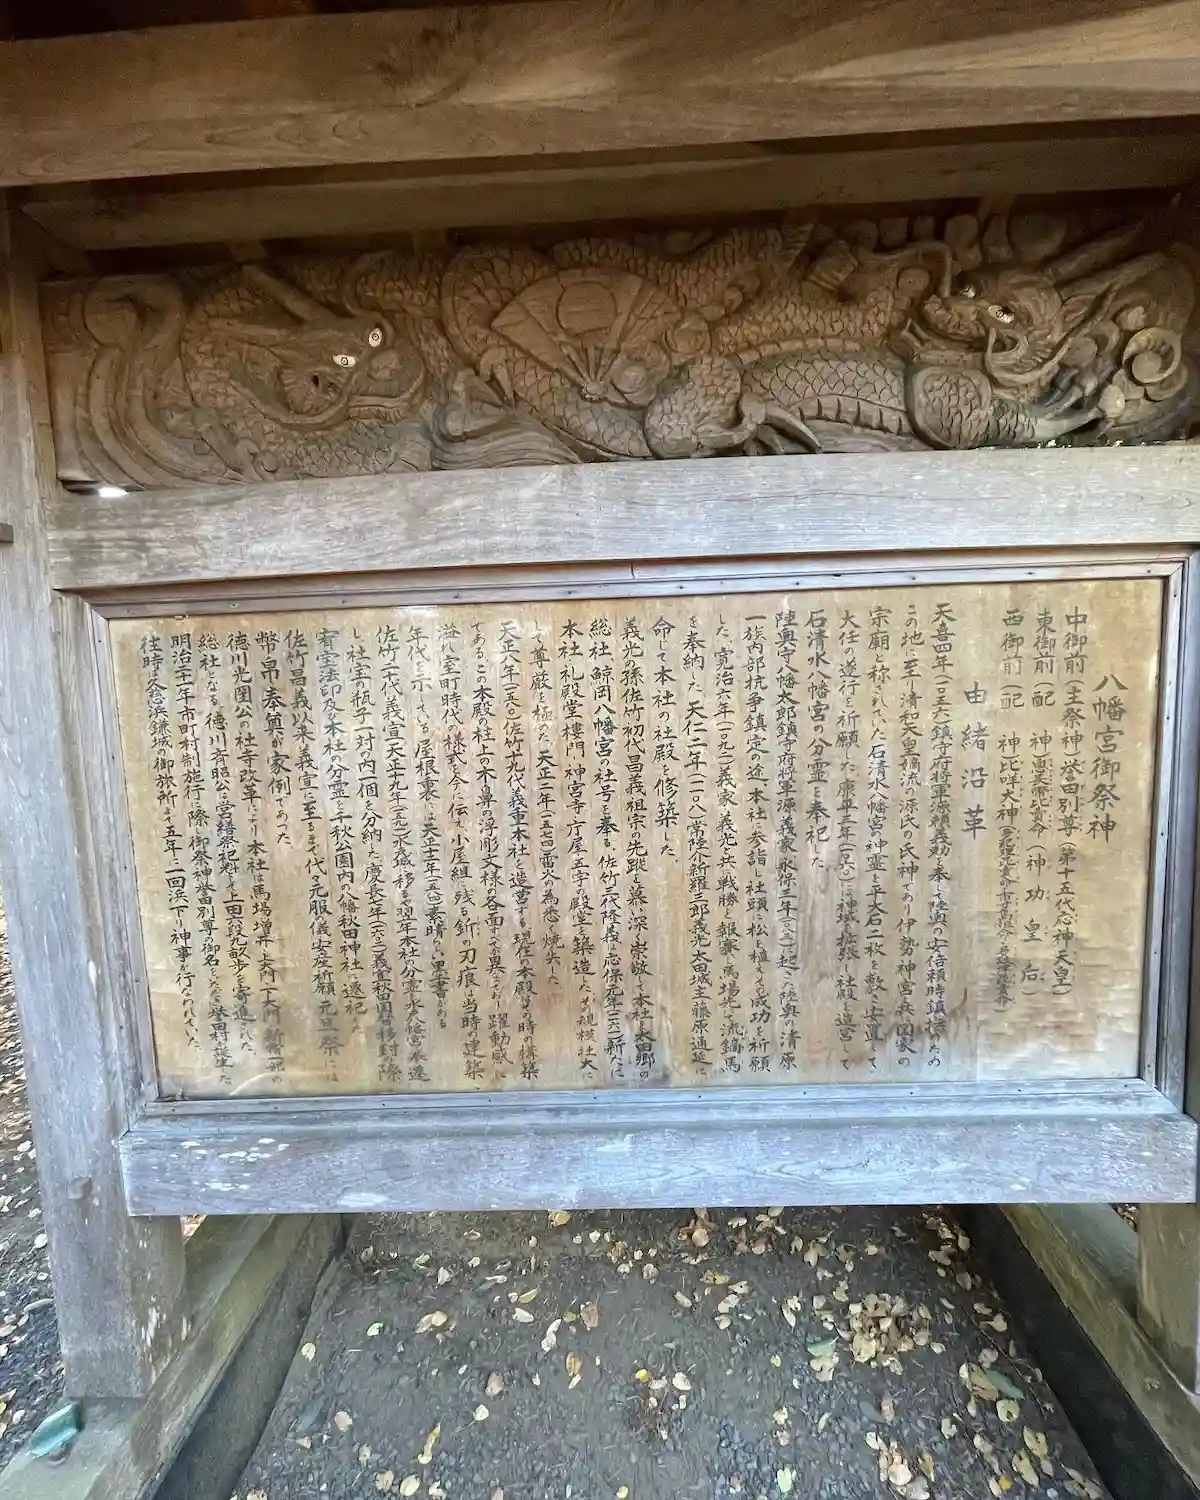 八幡宮御祭神
中御前(主祭神 誉田別尊(第十五代応神天皇)
東御前(配 神 恵 命(神功皇后)
西御前(配 神比咩大神
由緒沿革
天喜四年(一〇五六)鎮守府将軍源頼義勅を奉じ陸奥の安倍頼時鎮撫のため
この地に至り清和天皇嫡流の源氏の氏神であり伊勢神宮と共に国家の
宗廟と称されていた石清水八幡宮の神霊を平大石二枚を敷き安置して
大任の遂行を祈願した 康平三年(一〇六〇)に神域を拡張し社殿を造営して
石清水八幡宮の分霊を奉祀した
陸奥守八幡太郎鎮守府将軍源義家は永保三年(一〇八三)に起きた陸奥の清原
一族内部抗争鎮定の途で本社に参詣し社頭に松を植えその成功を祈願
した 寛治六年(一〇九二)義家は義光と共に戦勝を報賽し馬場先で流鏑馬
を奉納した 天仁二年(一一〇八)常陸介新羅三郎義光は太田城主藤原通延に
命じて本社の社殿を修築した
義光の孫佐竹初代昌義は祖宗の先蹤を慕い深く崇敬して本社を太田郷の
総社 鯨岡八幡宮の社号を奉る 佐竹三代隆義は応保元年(一一六一)新たに
本社 礼殿堂 楼門 神宮寺 庁屋五宇の殿堂を築造したがその規模壮大に
して尊厳を極めた 天正二年(一五七四)雷火の為悉く焼失した
天正八年(一五八〇)佐竹十九代義重本社を造営する 現在の本殿はその時の構築
である この本殿の柱上の木鼻の浮彫文様は各面すべて異っており躍動感に
溢れ室町時代の様式を今に伝え小屋組に残る釿の刃痕は当時の建築
年代を示している 屋根裏には天正十二年(一五八四)の素晴らしい墨書がある
佐竹二十代義宣は天正十九年(一五九一)水戸城に移るや翌年本社の分霊を水戸八幡宮に奉遷
し社宝の瓶子一対の内一個を分納した 慶長七年(一六〇二)義宣秋田国替移封の際
宥宝法印及び本社の分霊を千秋公園内の八幡秋田神社に遷祀した
佐竹昌義以来義宣に至るまで代々元服の儀 安産祈願 元旦祭には
幣帛の奉奠が家例であった
徳川光圀公の社寺改革により本社は馬場 増井 上大門 下大門 新宿 の
総社となる 徳川斉昭公は営繕祭祀料として上田六段九畝歩を寄進された
明治二十二年市町村制施行に際し御祭神誉田別尊の御名をいただき誉田村が誕生した
往時は久慈浜鎌城の御旅所まで五年に一回浜下り神事が行なわれていた